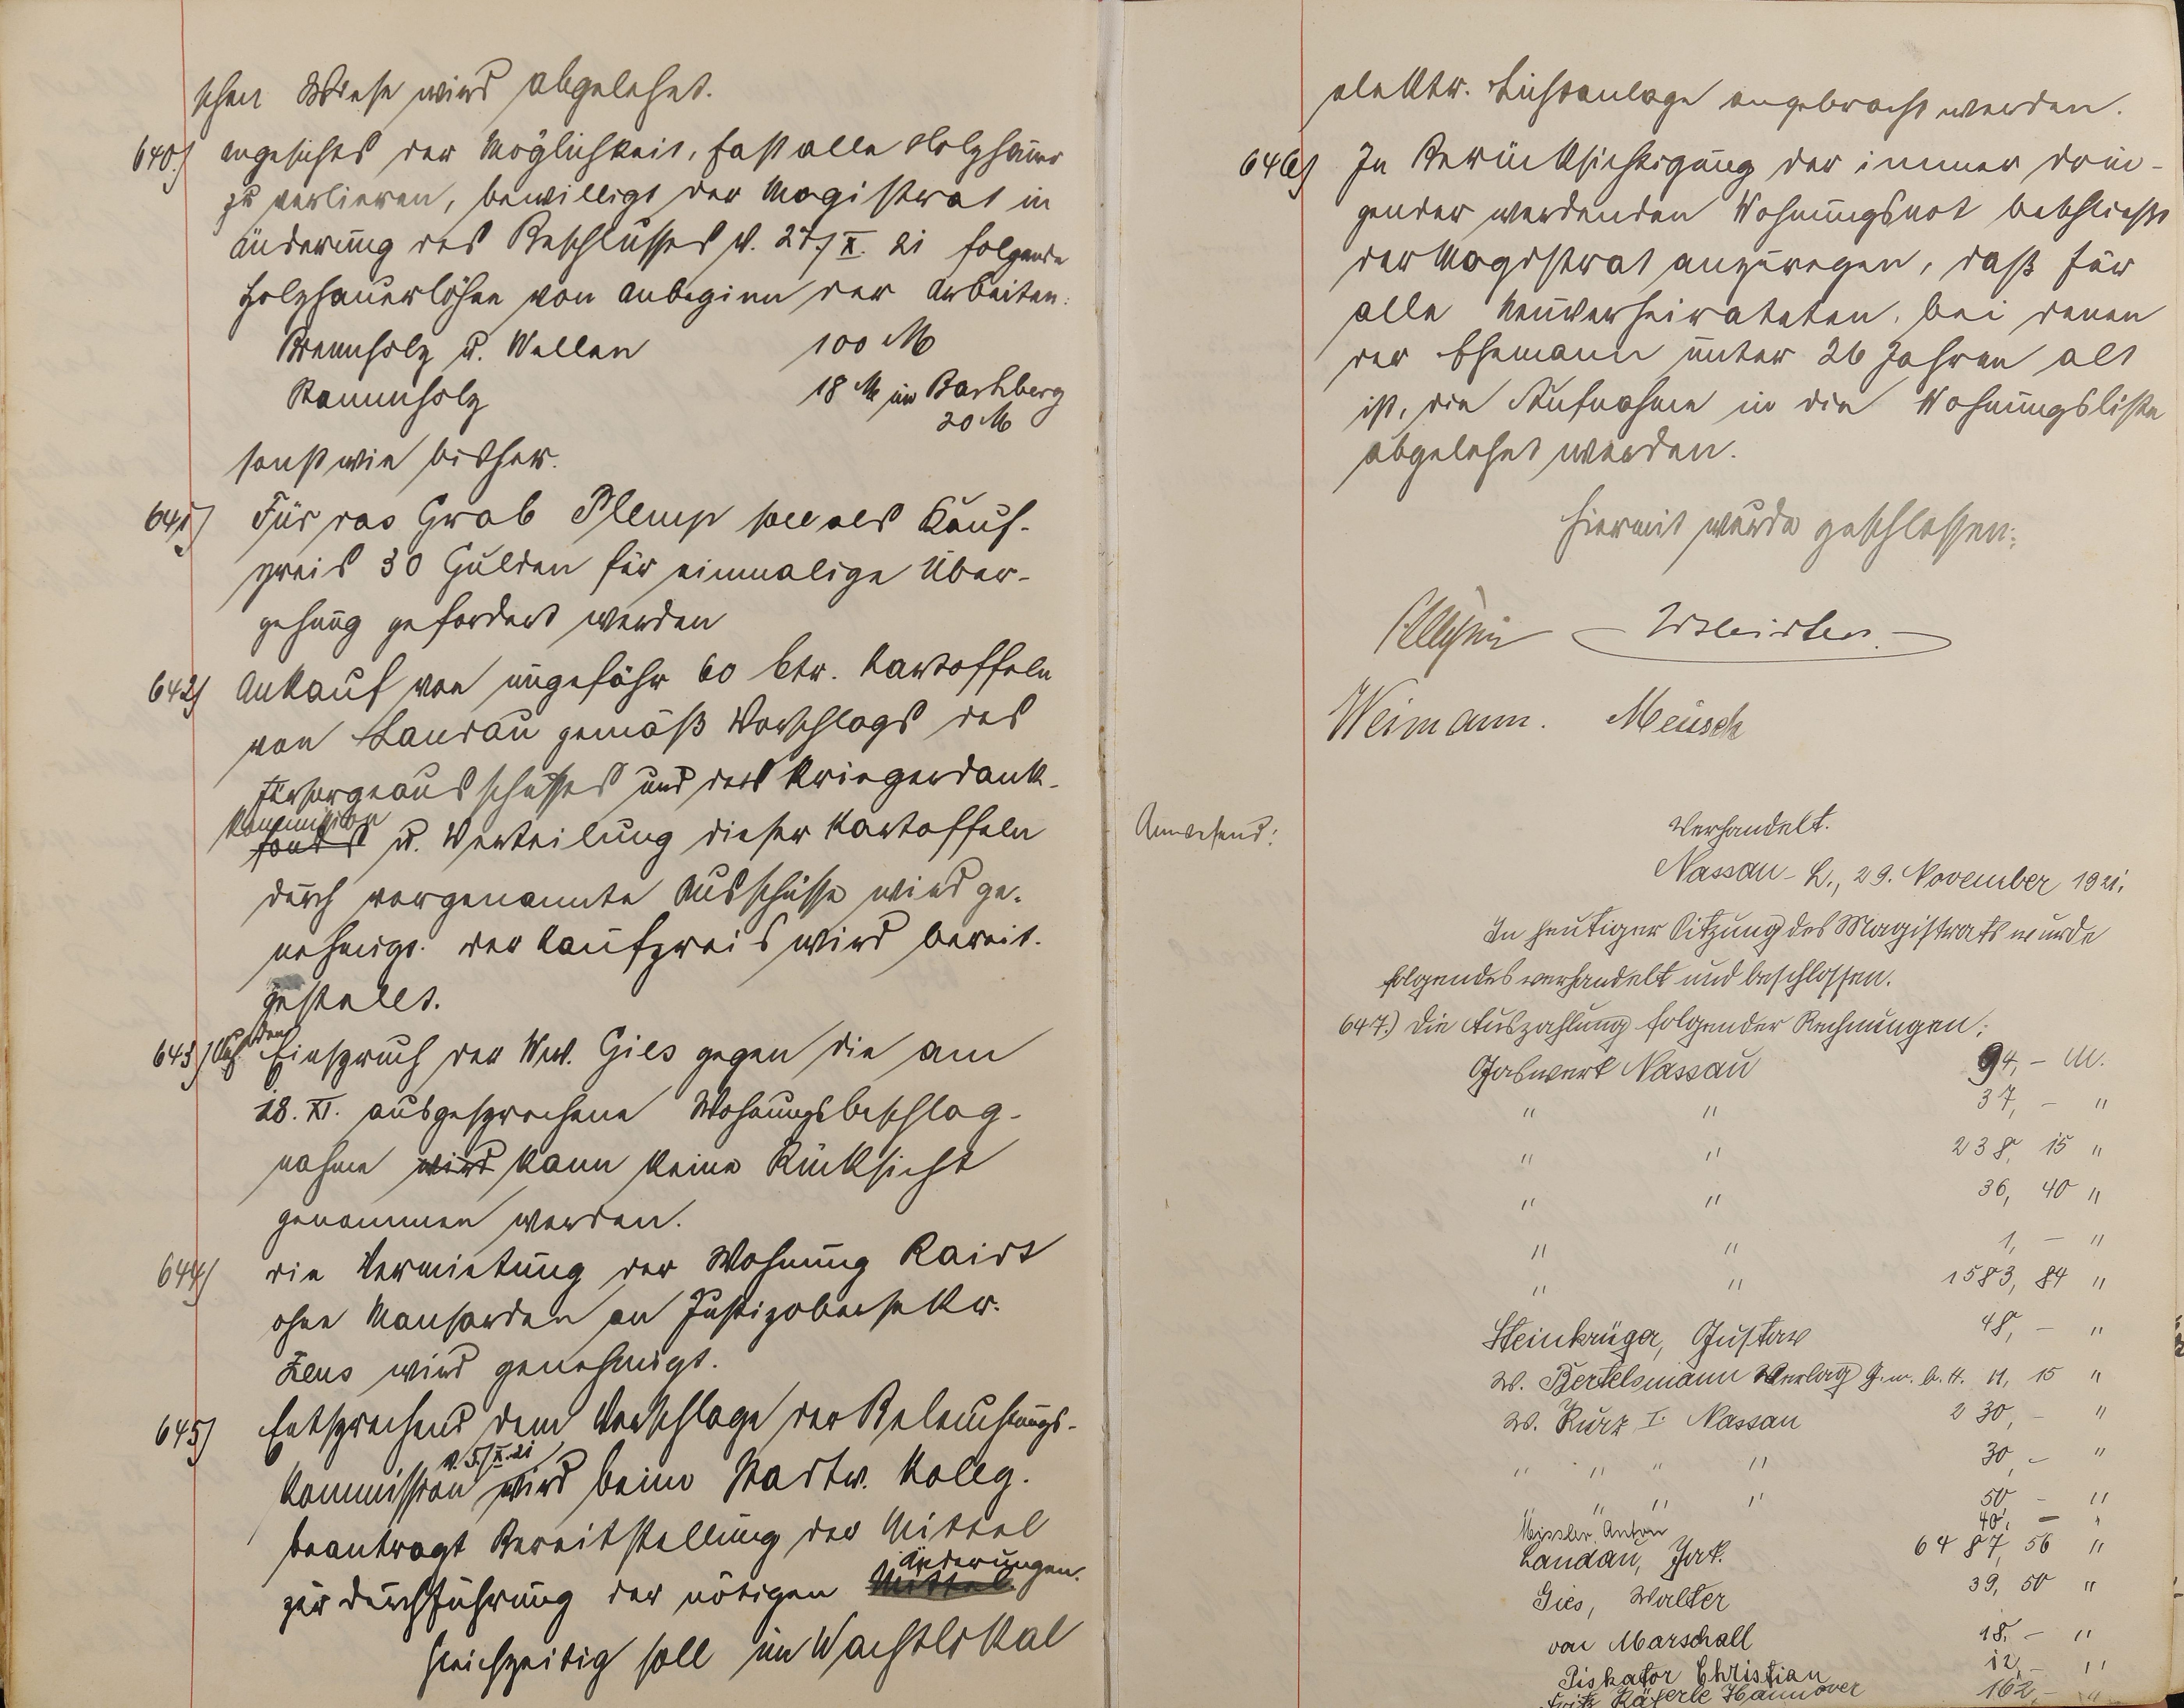 schen Wiese wird abgelehnt.
640.) Angesichts der Möglichkeit, fast alle Holzhauer
zu verlieren, bewilligt der Magistrat in
Änderung des Beschlusses v. 27./X. 21 folgende
Holzhauerlöhne von Anbeginn der Arbeiten:
Brennholz u. Wellen 100 M
Stammholz 18 M im
20 M
sonst wie bisher.
641) Für das Grab Plemp soll als Kauf-
preis 30 Gulden für einmalige Über-
gehung gefordert werden
642) Ankauf von ungefähr 60 Ctr. Kartoffeln
von Landau gemäß Vorschlags des
Fürsorgeausschusses und des Kriegerdank-
kommission
fonds u. Verteilung dieser Kartoffeln
durch vorgenannte Ausschüsse wird ge-
nehmigt. Der Kaufpreis wird bereit-
gestellt.
643) Auf den Einspruch der Ww. Gies gegen die am
18. XI. ausgesprochene Wohnungsbeschlag-
nahme wird kann keine Rücksicht
genommen werden.
644) Die Vermietung der Wohnung
ohne Mansarden an Justizobersekr.
Zeus wird genehmigt.
645) Entsprechend dem Vorschlage der Beleuchtungs-
v. 5./X. 21
kommission wird beim Stadtv. Kolleg.
beantragt Bereitstellung der Mittel
änderungen.
zur Durchführung der nötigen Mittel
Gleichzeitig soll im Wachtlokal
elektr. Lichtanlage angebracht werden.
646) In Berücksichtigung der immer drin-
gender werdenden Wohnungsnot beschließt
der Magistrat anzuregen, daß für
alle Neuverheirateten, bei denen
der Ehemann unter 26 Jahren alt
ist, die Aufnahme in die Wohnungsliste
abgelehnt werden.
Hiermit wurde geschlossen:
Weimann. Meusch
Anwesend:
Verhandelt.
Nassau-L., 29. November 1921.
In heutiger Sitzung des Magistrats wurde
folgendes verhandelt und beschlossen.
647.) Die Auszahlung folgender Rechnungen:
Gaswerk Nassau 94, – M.
" " 37, – "
" " 238, 15 "
" " 36, 40 "
" " 1, – "
" " 1583, 84 "
Steinkrüger, Gustav 48, – "
W. Bertelsmann Verlag G.m.b.H. 11, 15 "
W. Kurz I. Nassau 230, – "
" " " " 30, – "
" " " 50 – "
Anton 40, – "
Landau, Jak. 6487, 56 "
Gies, Walter 39, 50 "
von Marschall 18, – "
Piskator Christian 12, – "
Fritz Käferle Hannover 162, – "